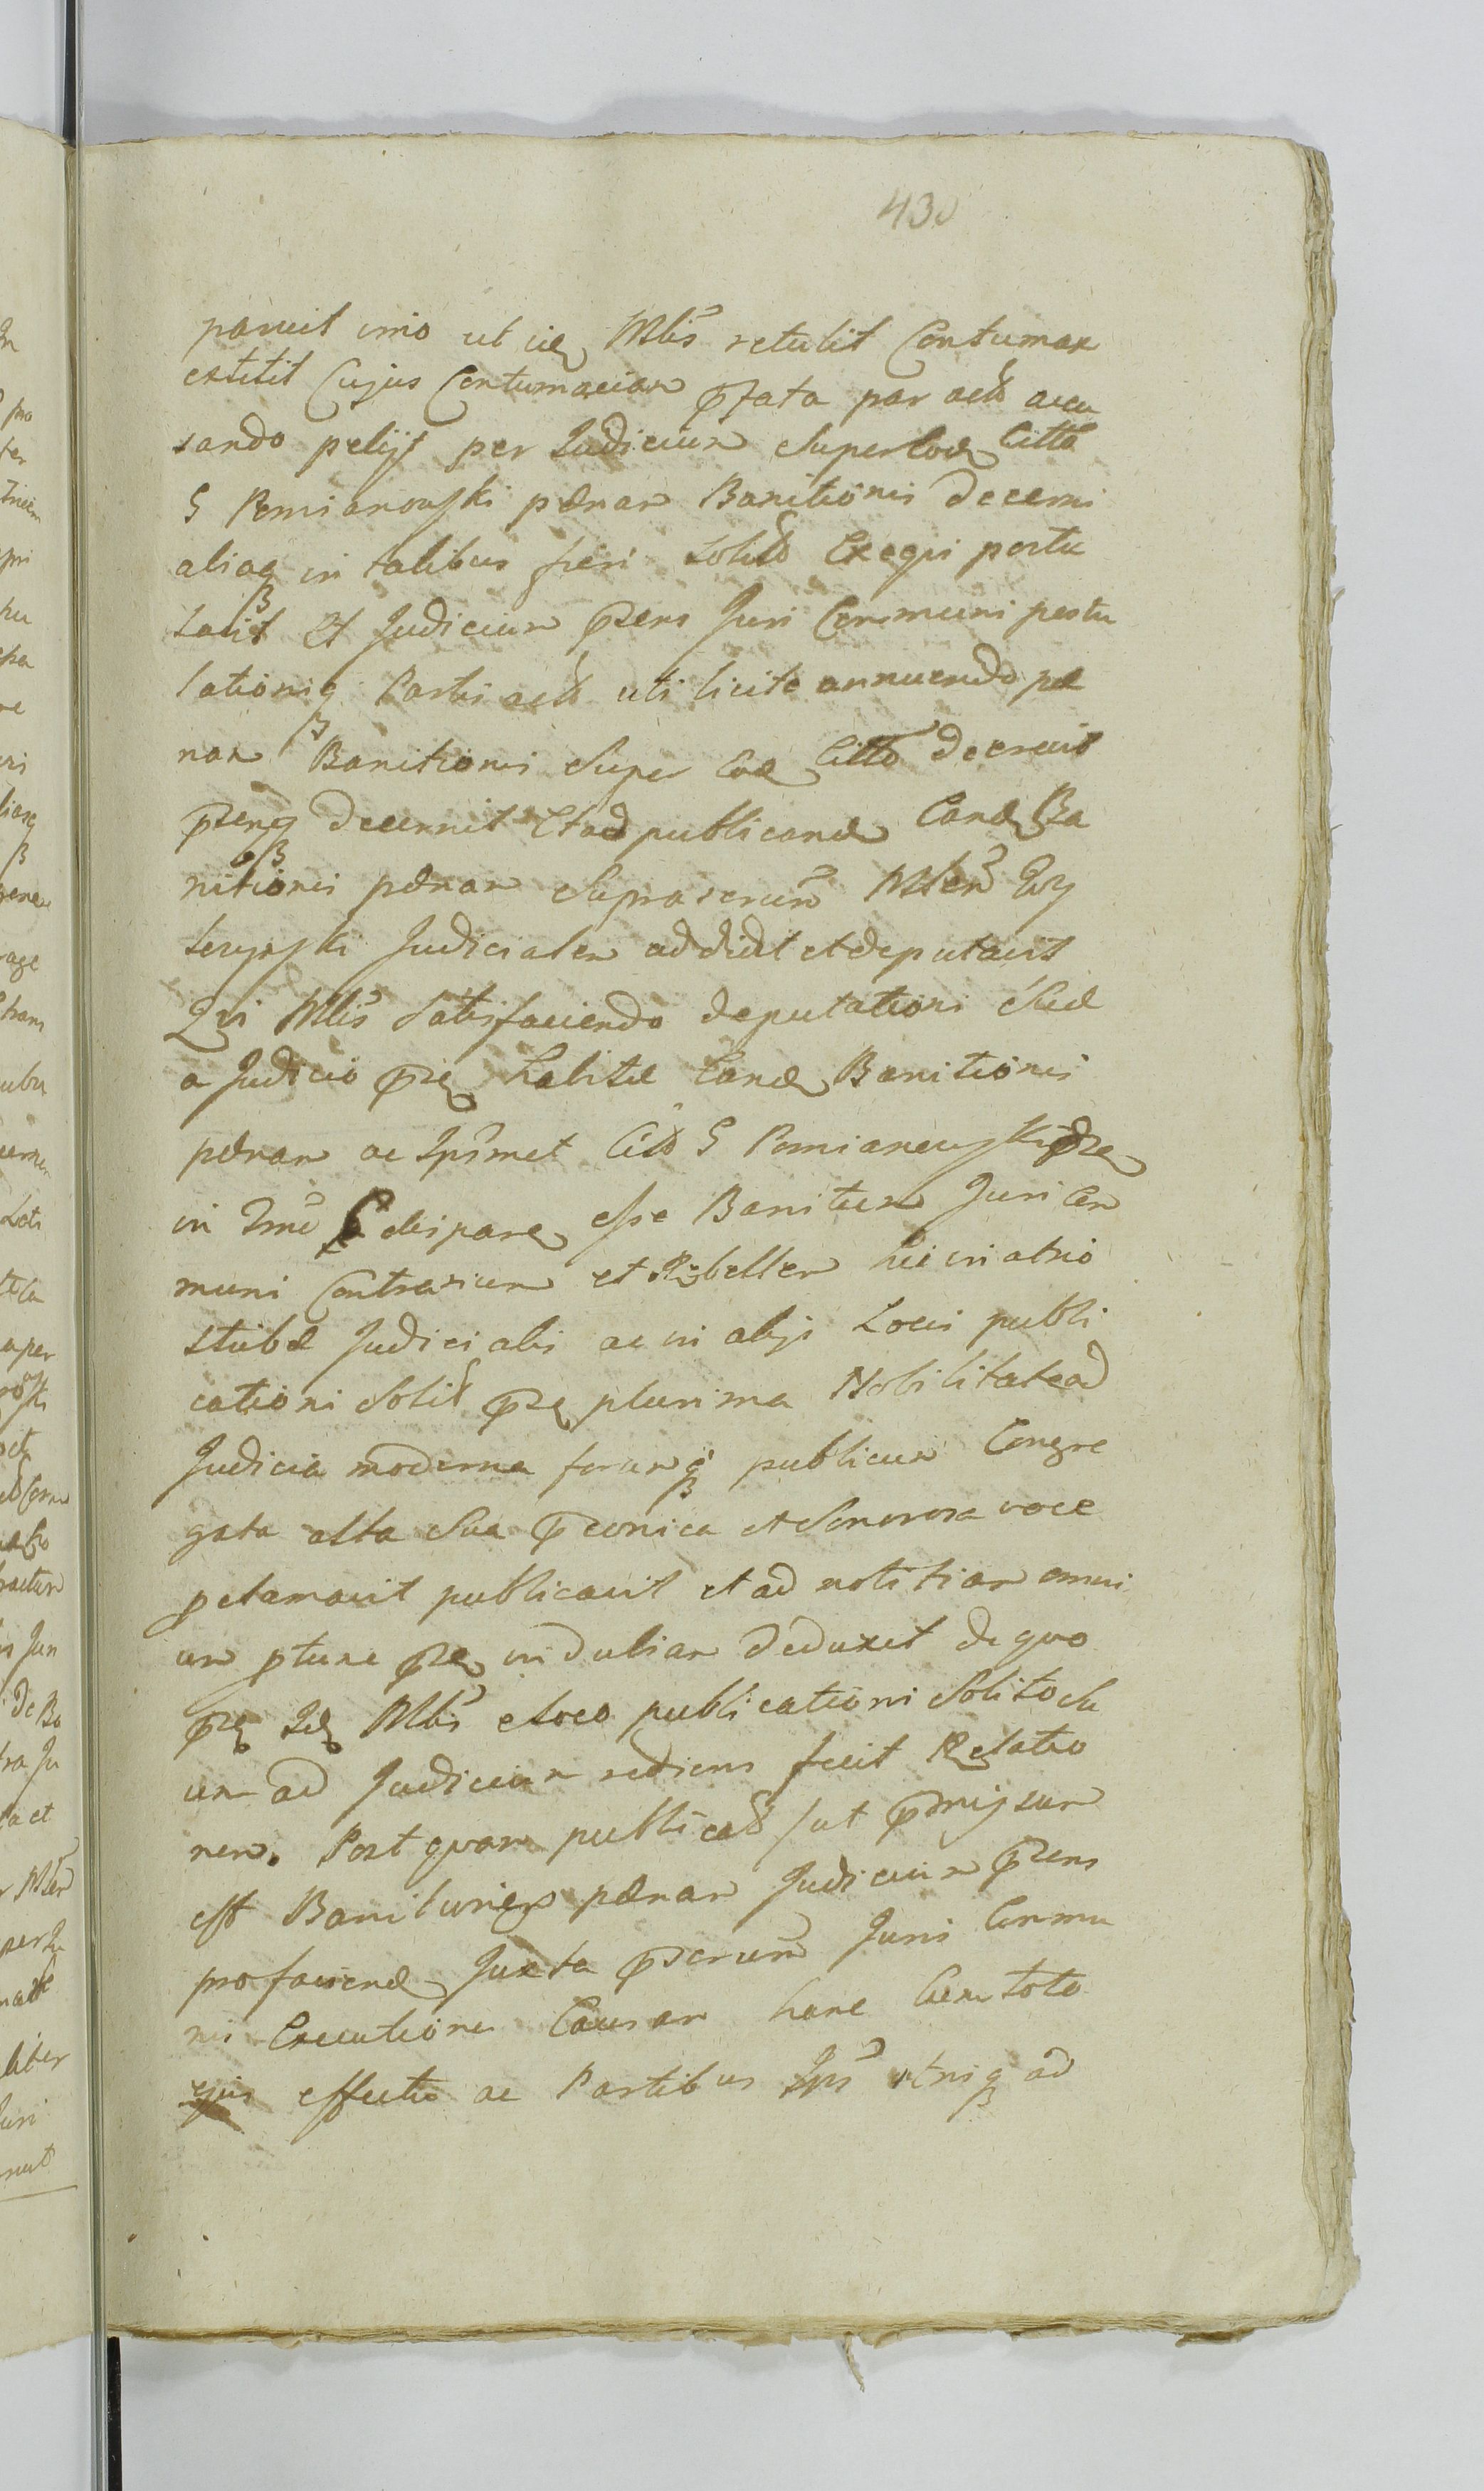 430
paruit imo ut id Mlis retulit Contumax
extitit Cujus Contumaciam pfata par act accu
sando petijt per Judicium super eod Citto
G Pomianowski pænam Banitionis decerni
aliaq in talibus fieri solit Exequi postu
lavit Et Judicium pzens Juri Communi postu
lationiq Partis act uti licite annuendo pæ
nam Banitionis super eod Citto decrevit
pzensq decernit Et ad publicand Eand Ba
nitionis pænam Suprascrum Mlem
Judicialem addidit et deputavit
Qui Mlis satisfaciendo deputationi suæ
a Judicio pze habitæ Eand Banitionis
pænam ac Ipsmet Citt G Pomianowski pze
in Imo disparen esse Banitum Juri Com
muni Contrarium et Rebellem hic in atrio
stubæ Judicialis ac in alijs Locis publi
cationi solit pze plurima Nobilitate ad
Judicia moderna forumq publicum Congre
gata alta sua pconica et sonorosa voce
pclamavit publicavit et ad notitiam omni
um pture pze in dubiam deduxit de quo
pze Id Mlis e loco publicationi solito su
um ad Judicium rediens fecit Relatio
nem. Post quam publicat ut pmissum
est Banitionis pænam Judicium pzens
pro faciend Juxta pscrum Juris Commu
nis Executione Causam hanc Cum toto
ejus effectu ac Partibus Ipis utrisq ad